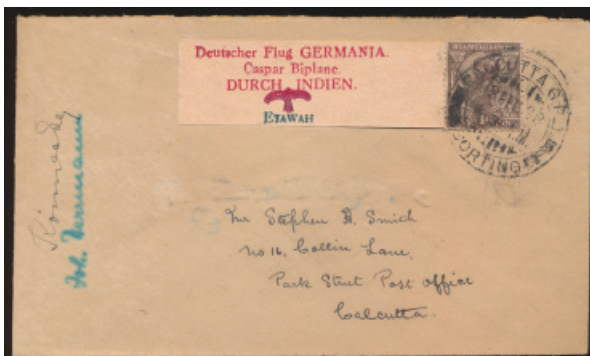 Deutscher Flug GERMANIA.
Caspar Biplane.
DURCH INDIEN.
ETAWAH
CALCUTTA
SORTING
Joh.
Mr Stephen H. Smith
No 16, Collin Lane,
Park Street Post Office
Calcutta.